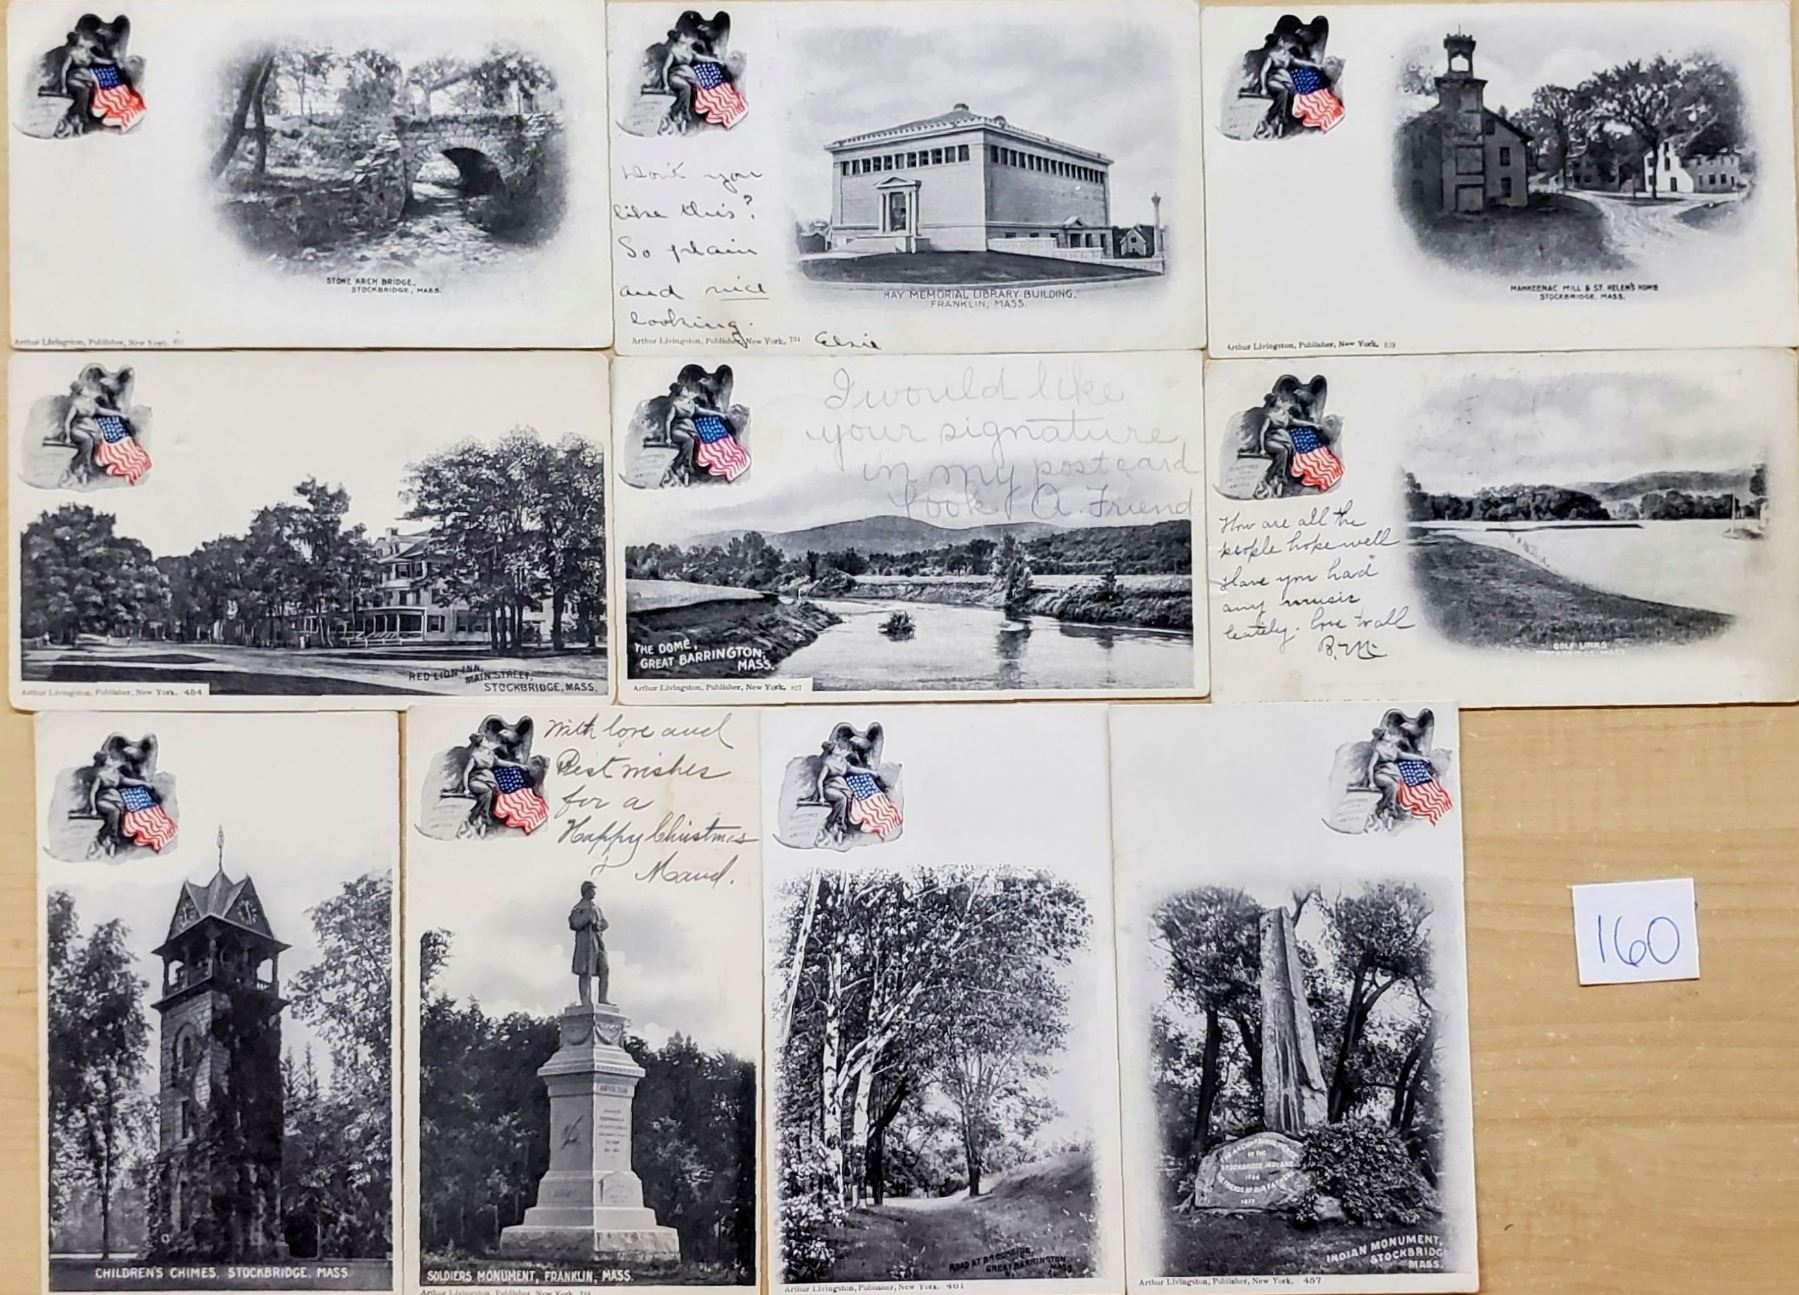 STONE ARCH BRIDGE,
STOCKBRIDGE, MASS.
Arthur Livingston, Publisher, New York.
Don't you
like this?
So plain
and nice
looking.
Elsie
RAY MEMORIAL LIBRARY BUILDING,
FRANKLIN, MASS.
Arthur Livingston, Publisher, New York. 731
MAHKEENAC MILL & ST. HELEN'S HOME
STOCKBRIDGE, MASS.
Arthur Livingston, Publisher, New York. 829
RED LION INN,
MAIN STREET,
STOCKBRIDGE, MASS.
Arthur Livingston, Publisher, New York. 484
I would like
your signature
in my postcard
book A. Friend
THE DOME,
GREAT BARRINGTON,
MASS.
Arthur Livingston, Publisher, New York. 827
How are all the
people hope well
Have you had
any music
lately. love to all
GOLF LINKS
STOCKBRIDGE MASS
CHILDREN'S CHIMES, STOCKBRIDGE, MASS.
With love and
Best wishes
for a
Happy Christmas
Maud.
SOLDIERS MONUMENT, FRANKLIN, MASS.
Arthur Livingston, Publisher, New York
ROAD AT BROOKSIDE,
GREAT BARRINGTON,
MASS.
Arthur Livingston, Publisher, New York. 461
THE ANCIENT BURIAL PLACE
OF THE
STOCKBRIDGE INDIANS
1734
THE FRIENDS OF OUR FATHERS
1877
INDIAN MONUMENT,
STOCKBRIDGE
MASS.
Arthur Livingston, Publisher, New York. 457
160